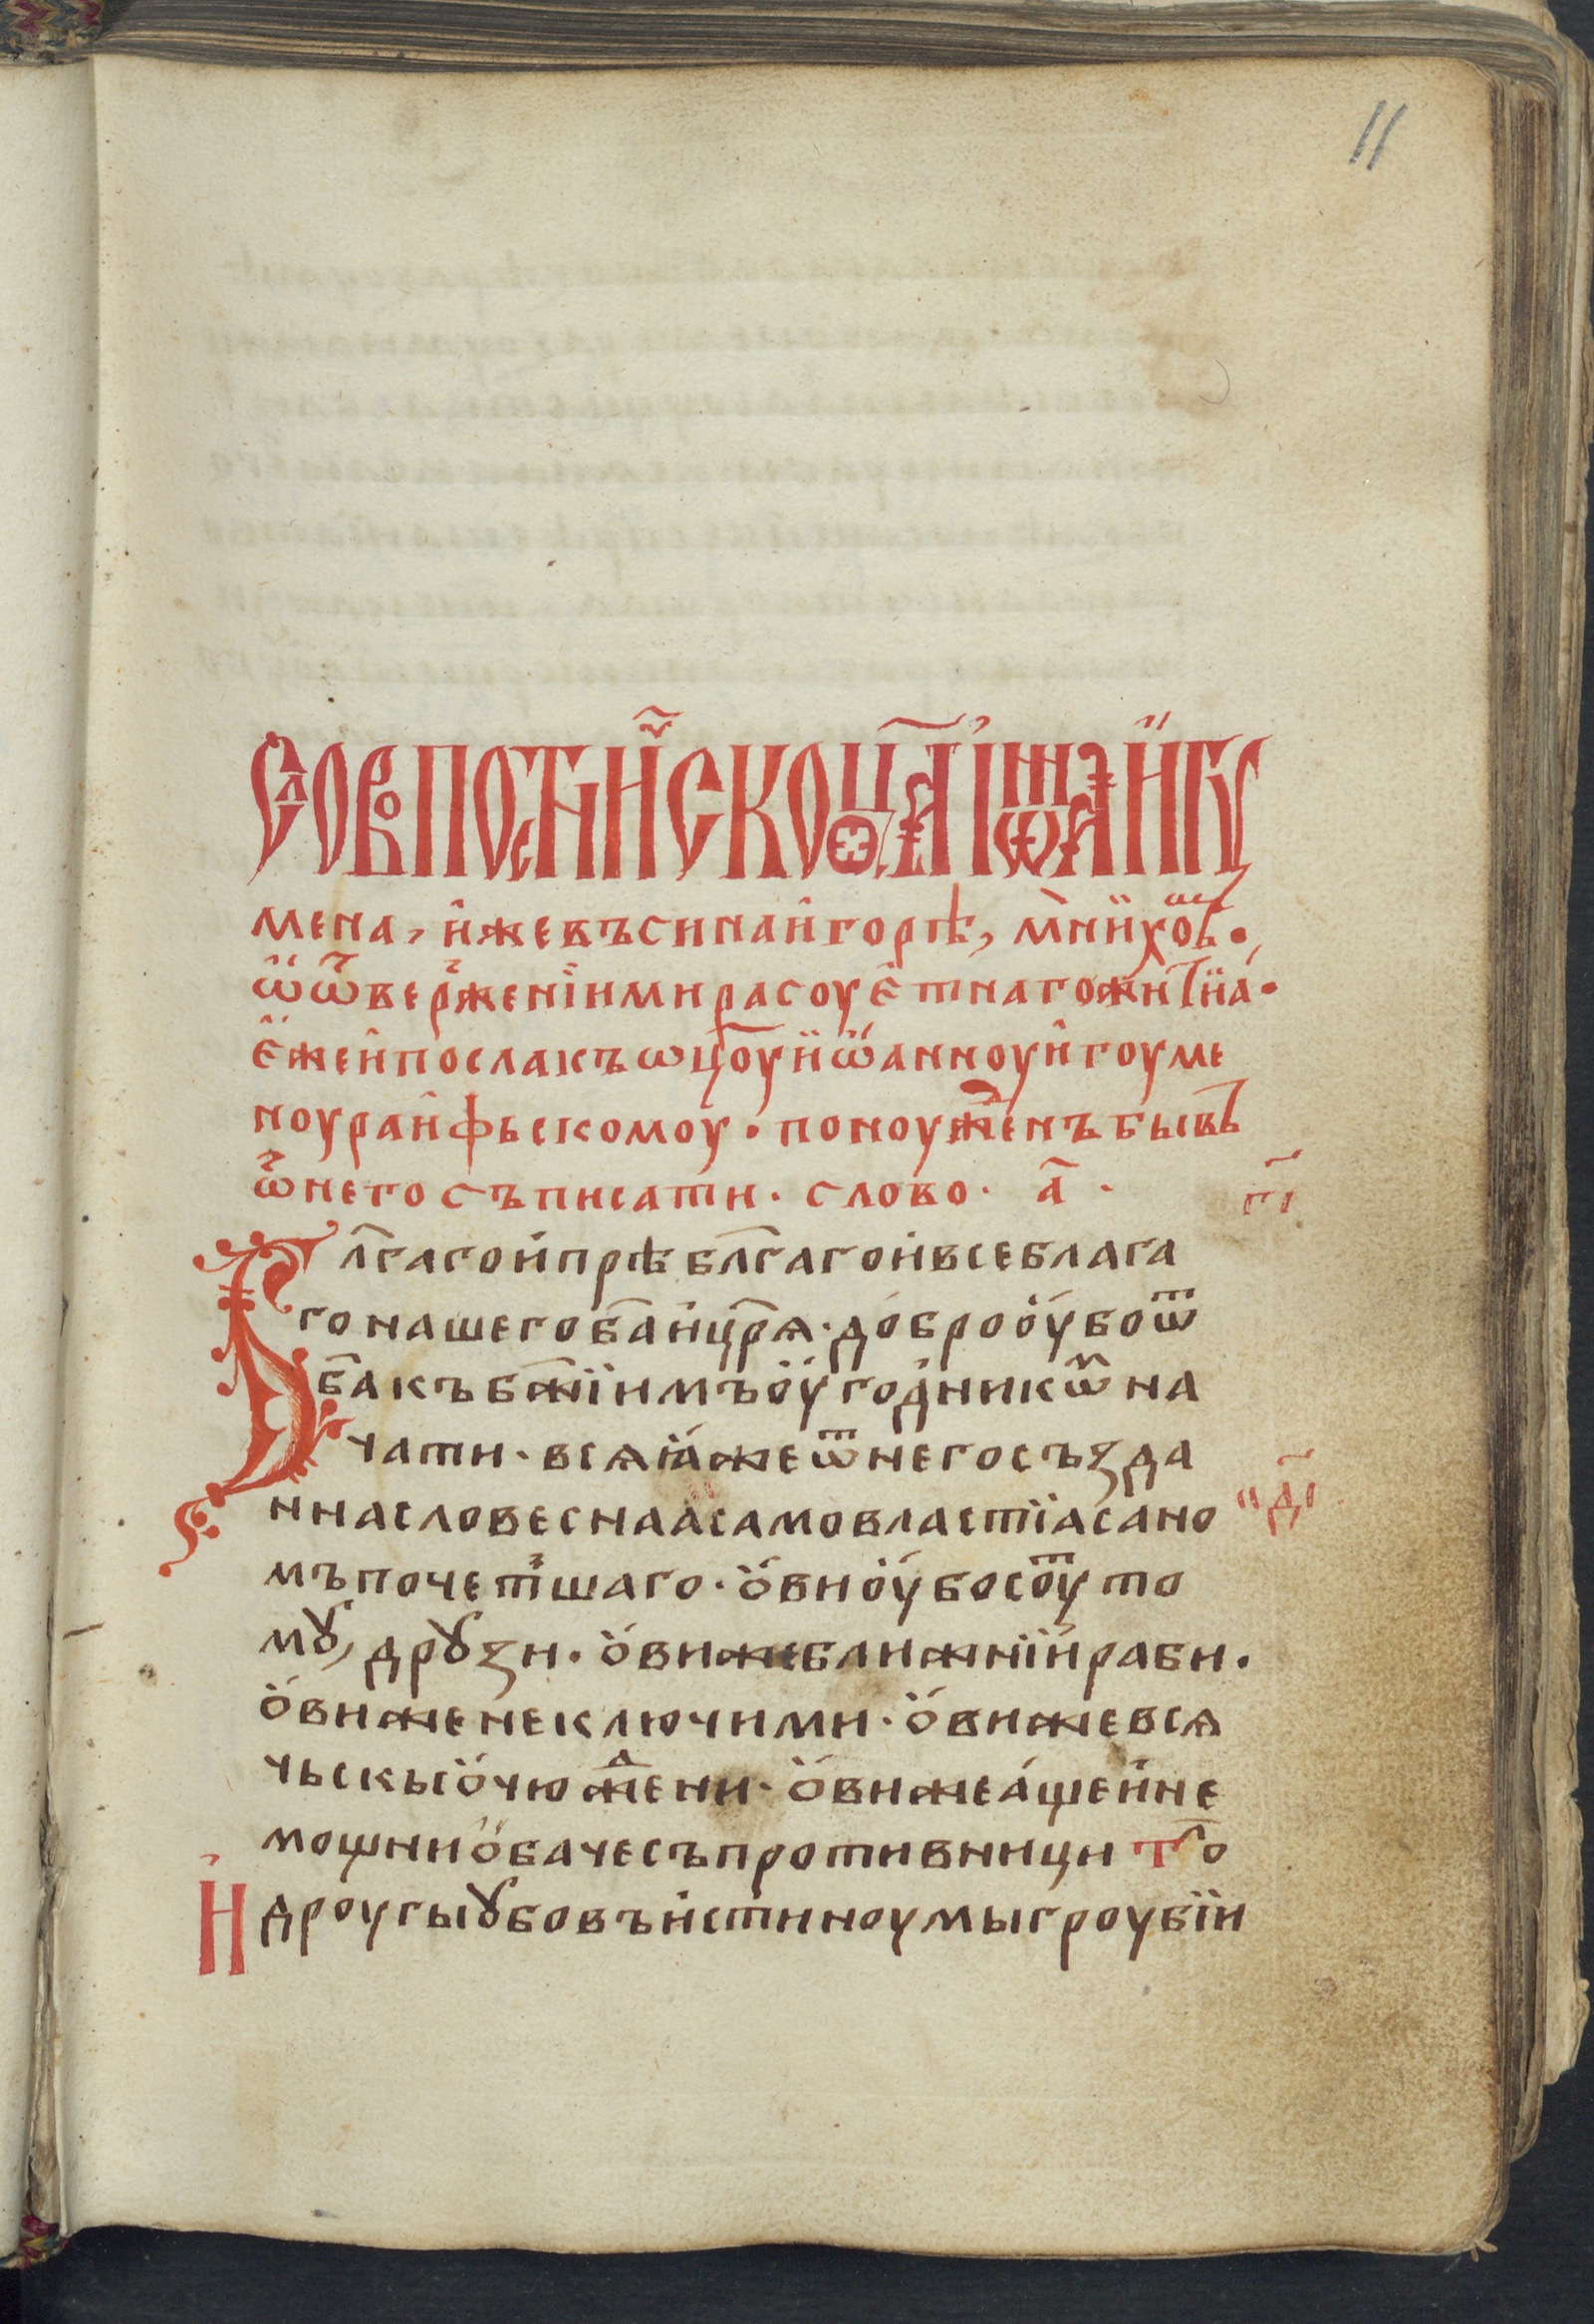 11
Слово постническо ѿца Іѡанна игꙋ
мена, и҆же въ синаи҆ горѣ, мнихѡⷨ.
ѡ҆ ѿверⷤженїи мира соуе҆тнаго житїа.
е҆же и҆ посла къ ѡц҃оу ї҆ѡ҆анноу и҆гоуме
ноу раи҆фьскомоу. поноуженъ бывъ
ѿ него съписати. слово. а҃.
г҃і
Бл҃гаго и҆ прѣбл҃гаго и҆ всеблага
го нашего б҃а и҆ цр҃ѧ. добро оу҆бо ѿ
б҃а къ бж҃їимъ оу҆годникѡⷨ на
чати. всѧ ꙗ҆же ѿ него създа
ннаа словеснаа самовластїа сано
д҃і
мъ почетшаго. о҆ви оу҆бо соуⷮ то
мꙋ, дрꙋзи. о҆ви же ближнїи раби.
о҆ви же неключими. о҆ви же всѧ
чьскы о҆чюжⷣени. о҆ви же а҆ще и҆ не
мощни о҆баче съпротивници тⷨо
И дроугы ꙋ҆бо въ и҆стинноу мы гроубїи